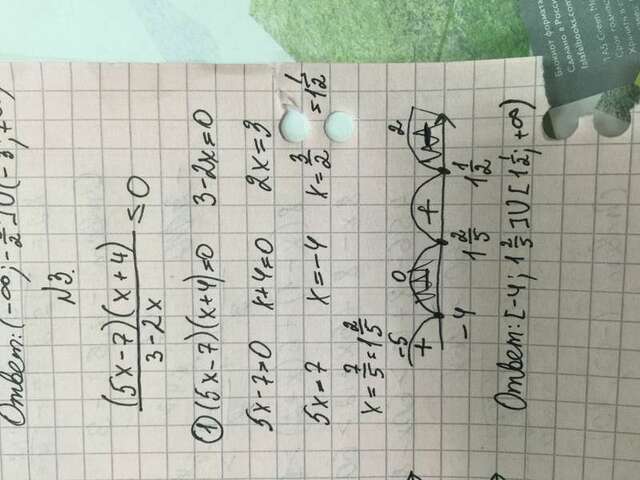 Ответ: (-∞; -1/2]∪(-3; +∞)
№3.
(5x-7)(x+4)/(3-2x) ≤ 0
① (5x-7)(x+4)=0 3-2x=0
5x-7=0 x+4=0 2x=3
5x=7 x=-4 x=3/2 =1 1/2
x=7/5=1 2/5
-5 0 2
+ - + -
-4 1 2/5 1 1/2
Ответ: [-4; 1 2/5]∪[1 1/2; +∞)
Блокнот формата
Сделано в Росси
falafelbooks.com
Green Me
Срок годнос
Хранить в с